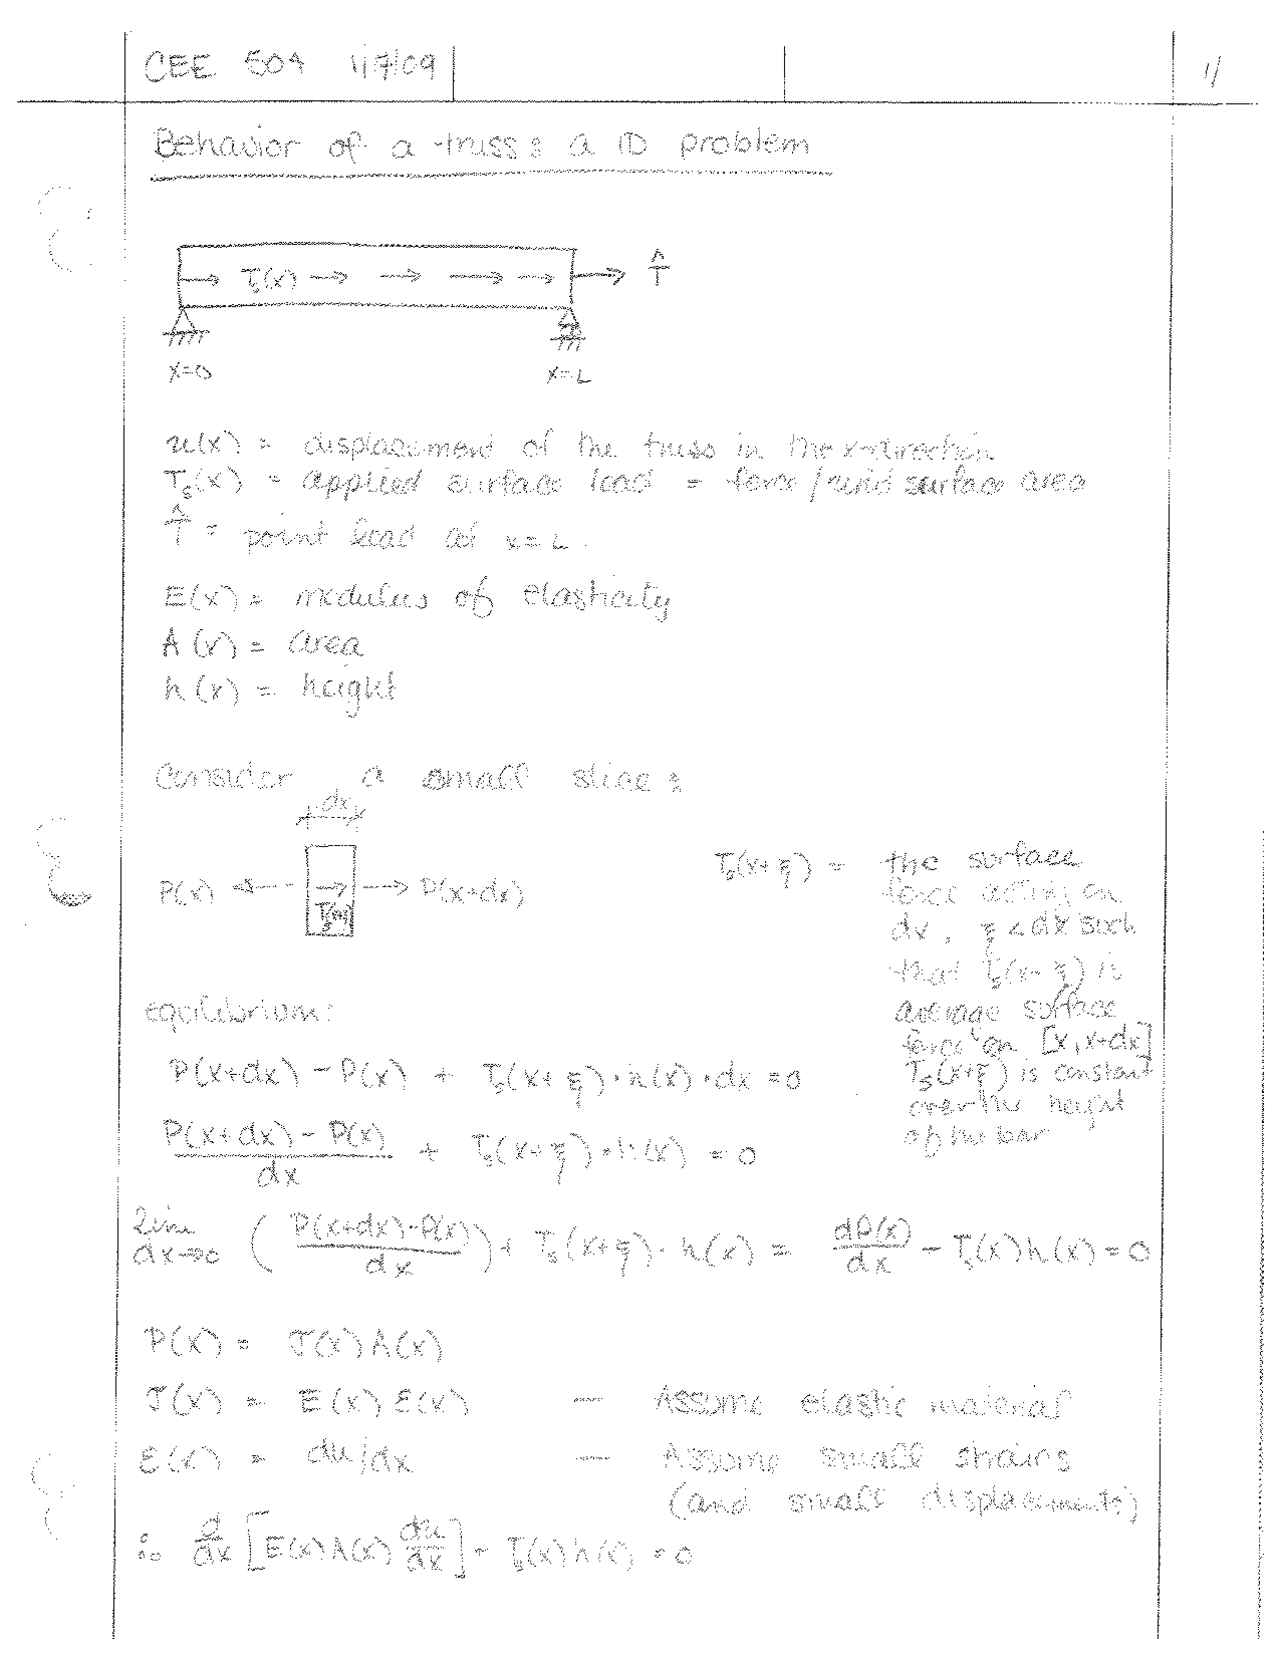 CEE 504 1/7/09
1/
Behavior of a truss: a 1D problem
Ts(x)
T̂
x=0
x=L
u(x) = displacement of the truss in the x-direction
Ts(x) = applied surface load = force/unit surface area
T̂ = point load at x=L.
E(x) = modulus of elasticity
A(x) = area
h(x) = height
Consider a small slice:
dx
P(x)
P(x+dx)
Ts(x+ξ) = the surface
force acting on
dx, ξ<dx such
that Ts(x-ξ) is
average surface
force on [x,x+dx]
Ts(x+ξ) is constant
over the height
of the bar
equilibrium:
P(x+dx) - P(x) + Ts(x+ξ)·h(x)·dx = 0
(P(x+dx) - P(x))/dx + Ts(x+ξ)·h(x) = 0
lim dx→0 ( (P(x+dx)-P(x))/dx ) + Ts(x+ξ)·h(x) = dP(x)/dx - Ts(x)h(x) = 0
P(x) = σ(x)A(x)
σ(x) = E(x)ε(x) — Assume elastic material
ε(x) = du/dx — Assume small strains
(and small displacements)
∴ d/dx [E(x)A(x) du/dx] - Ts(x)h(x) = 0